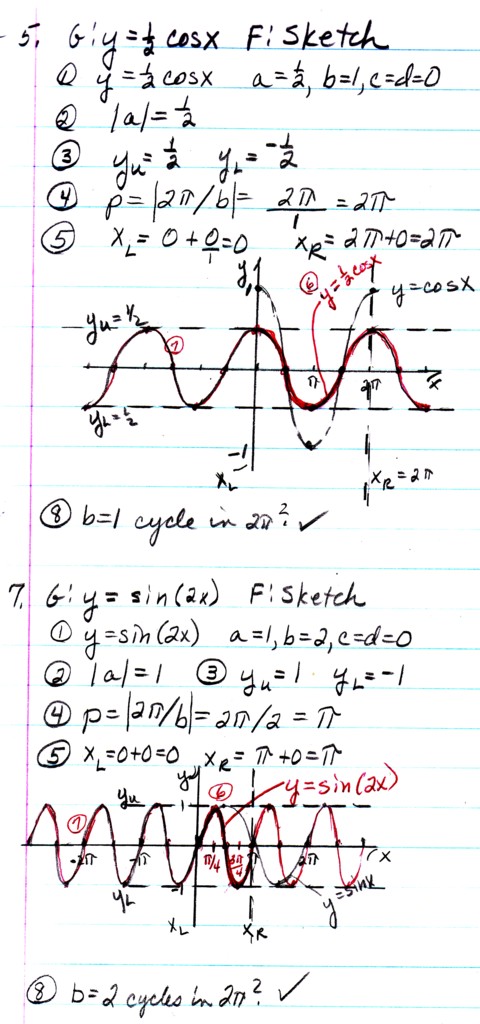 5. G: y = ½ cos x   F: Sketch
① y = ½ cos x   a = ½, b = 1, c = d = 0
② |a| = ½
③ yu = ½   yL = -½
④ p = |2π/b| = 2π/1 = 2π
⑤ xL = 0 + 0/1 = 0   xR = 2π + 0 = 2π
y   ⑥ y = ½ cos x
1   y = cos x
yu = ½
⑦   π   2π   x
yL = ½
-1
xL   xR = 2π
⑧ b = 1 cycle in 2π? ✓
7. G: y = sin(2x)   F: Sketch
① y = sin(2x)   a = 1, b = 2, c = d = 0
② |a| = 1   ③ yu = 1   yL = -1
④ p = |2π/b| = 2π/2 = π
⑤ xL = 0 + 0 = 0   xR = π + 0 = π
y   ⑥   y = sin(2x)
yu   1
⑦
-2π   -π   π/4   3π/4   π   2π   x
yL   -1   y = sin x
xL   xR
⑧ b = 2 cycles in 2π? ✓